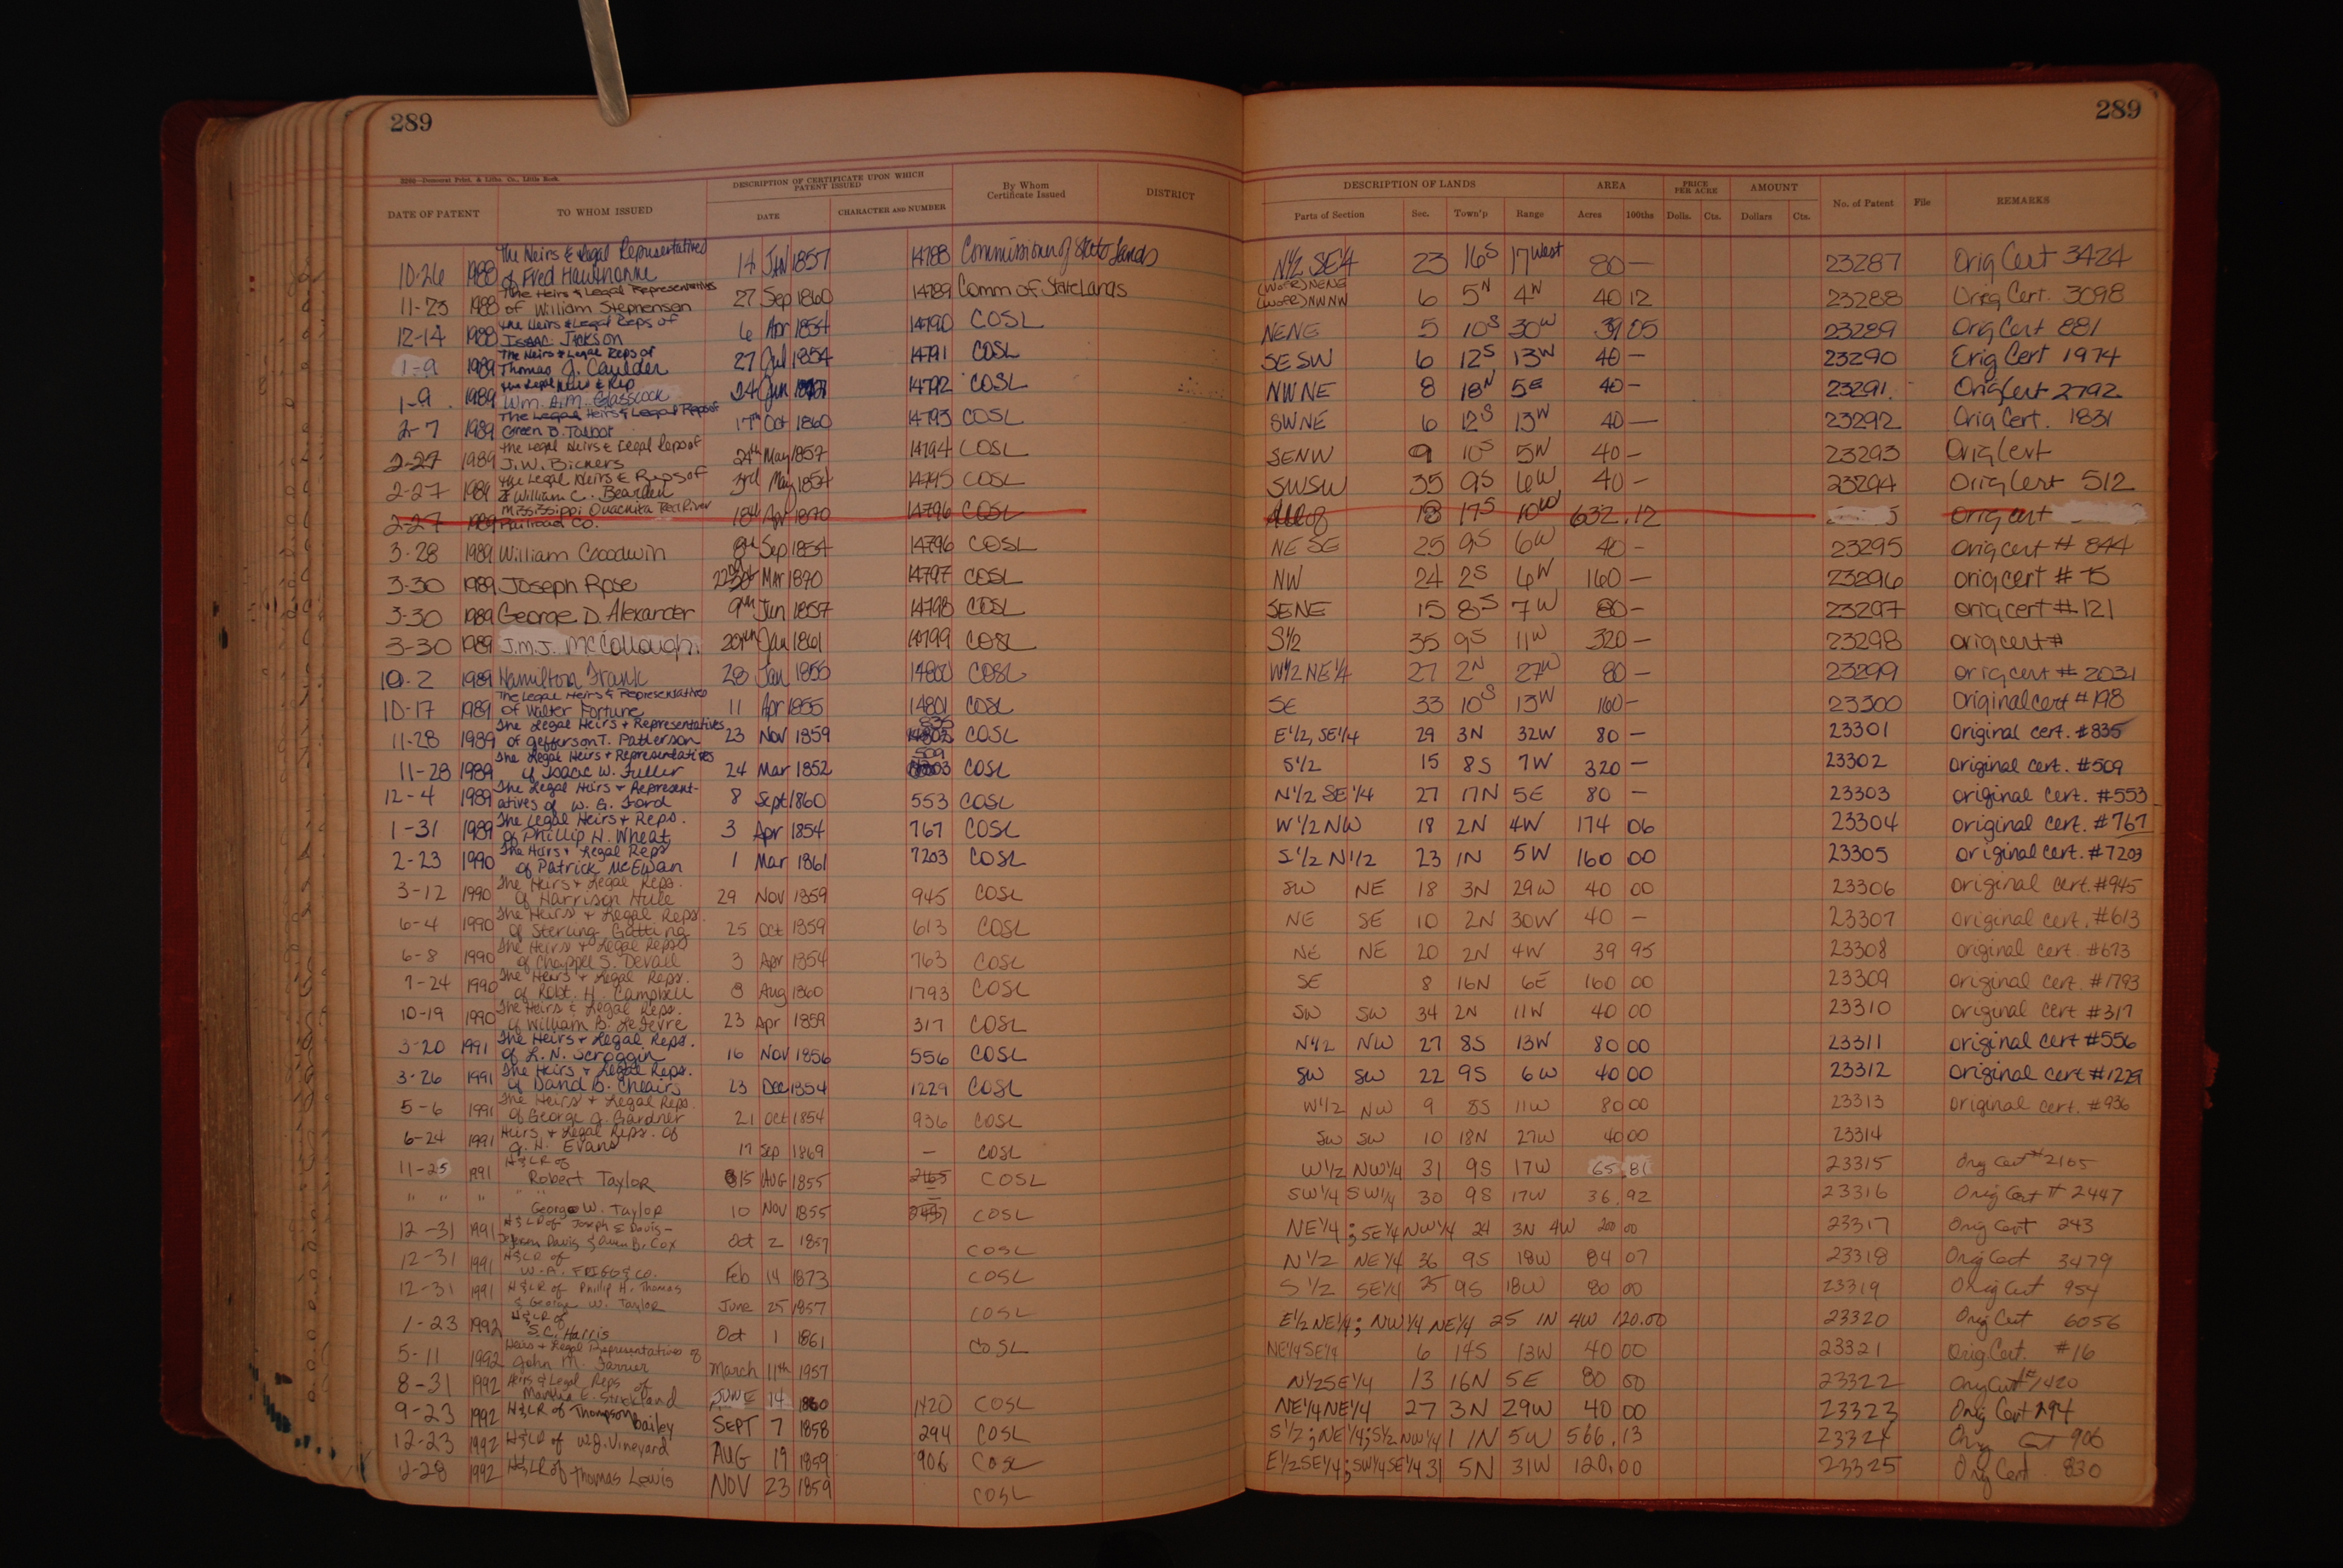 289
289
2296—Democrat Print. & Litho. Co., Little Rock.
DATE OF PATENT TO WHOM ISSUED DESCRIPTION OF CERTIFICATE UPON WHICH PATENT ISSUED DATE CHARACTER AND NUMBER By Whom Certificate Issued DISTRICT DESCRIPTION OF LANDS Parts of Section Sec. Town'p Range AREA Acres 100ths PRICE PER ACRE Dolls. Cts. AMOUNT Dollars Cts. No. of Patent File REMARKS
10-26 1988 The Heirs & Legal Representatives of Fred Hawthorne 14 JAN 1857 14788 Commissioner of State Lands N1/2 SE1/4 23 16S 17West 80 — 23287 Orig Cert 3424
11-23 1988 The Heirs & Legal Representatives of William Stephenson 27 Sep 1860 14789 Comm of State Lands (WofR) NENE (WofR) NWNW 6 5N 4W 40 12 23288 Orig Cert. 3098
12-14 1988 The Heirs & Legal Reps of Isaac Jackson 6 Apr 1854 14790 COSL NENE 5 10S 30W 39 05 23289 Orig Cert 881
1-9 1989 The Heirs & Legal Reps of Thomas J. Caulder 27 Jul 1854 14791 COSL SESW 6 12S 13W 40 — 23290 Orig Cert 1974
1-9 1989 The Legal Heirs & Rep Wm. A.M. Glasscock 24 Jun 14792 COSL NWNE 8 18N 5E 40 — 23291 Orig Cert 2792
2-7 1989 The Legal Heirs & Legal Reps of Green B. Talbot 17th Oct 1860 14793 COSL SWNE 6 12S 13W 40 — 23292 Orig Cert. 1831
2-27 1989 The Legal Heirs & Legal Reps of J.W. Bickers 24th May 1857 14794 COSL SENW 9 10S 5W 40 — 23293 Orig Cert
2-27 1989 The Legal Heirs & Reps of William C. Bearden 3rd May 1854 14795 COSL SWSW 35 9S 6W 40 — 23294 Orig Cert 512
2-27 1989 Mississippi Ouachita Red River Railroad Co. 18th Apr 1870 14796 COSL All of 18 17S 10W 632.12 5 Orig cert
3-28 1989 William Goodwin 8th Sep 1854 14796 COSL NE SE 25 9S 6W 40 — 23295 Orig cert # 844
3-30 1989 Joseph Rose 22nd MAR 1870 14797 COSL NW 24 2S 6W 160 — 23296 Orig cert # 75
3-30 1989 George D. Alexander 9th Jun 1857 14798 COSL SENE 15 8S 7W 80 — 23297 orig cert # 121
3-30 1989 J.M.J. McCollough 29th Jan 1861 14799 COSL S1/2 35 9S 11W 320 — 23298 orig cert #
10-2 1989 Hamilton Frank 28 Jan 1855 14800 COSL W1/2 NE1/4 27 2N 27W 80 — 23299 orig cert # 2031
10-17 1989 The Legal Heirs & Representatives of Walter Fortune 11 Apr 1855 14801 COSL SE 33 10S 13W 160 — 23300 Original cert # 198
11-28 1989 The Legal Heirs + Representatives of Jefferson T. Patterson 23 Nov 1859 835 COSL E1/2, SE1/4 29 3N 32W 80 — 23301 Original cert. #835
11-28 1989 The Legal Heirs + Representatives of Isaac W. Fuller 24 Mar 1852 509 COSL S1/2 15 8S 7W 320 — 23302 Original cert. #509
12-4 1989 The Legal Heirs + Representatives of W. G. Ford 8 Sept 1860 553 COSL N1/2 SE1/4 27 17N 5E 80 — 23303 Original cert. #553
1-31 1989 The Legal Heirs + Reps. of Phillip H. Wheat 3 Apr 1854 767 COSL W1/2 NW 18 2N 4W 174 06 23304 original cert. #767
2-23 1990 The Heirs + Legal Reps of Patrick McEwan 1 Mar 1861 7203 COSL S1/2 N1/2 23 1N 5W 160 00 23305 original cert. #7203
3-12 1990 The Heirs + Legal Reps. of Harrison Hule 29 Nov 1859 945 COSL SW NE 18 3N 29W 40 00 23306 original cert. #945
6-4 1990 The Heirs + Legal Reps. of Sterling Gatting 25 Oct 1859 613 COSL NE SE 10 2N 30W 40 — 23307 original cert. #613
6-8 1990 The Heirs + Legal Reps of Chappel S. Devall 3 Apr 1854 763 COSL NE NE 20 2N 4W 39 95 23308 original cert. #673
7-24 1990 The Heirs + Legal Reps. of Robt. H. Campbell 8 Aug 1860 1793 COSL SE 8 16N 6E 160 00 23309 Original cert. #1793
10-19 1990 The Heirs & Legal Reps. of William B. LeFevre 23 Apr 1859 317 COSL SW SW 34 2N 11W 40 00 23310 original cert #317
3-20 1991 The Heirs + Legal Reps. of L. N. Scroggin 16 Nov 1856 556 COSL N1/2 NW 27 8S 13W 80 00 23311 original cert #556
3-26 1991 The Heirs + Legal Reps. of David B. Cheairs 23 Dec 1854 1229 COSL SW SW 22 9S 6W 40 00 23312 Original cert #1229
5-6 1991 The Heirs + Legal Reps. of George J. Gardner 21 Oct 1854 936 COSL W1/2 NW 9 8S 11W 80 00 23313 Original cert. #936
6-24 1991 Heirs + Legal Reps. of G. H. Evans 17 Sep 1869 — COSL SW SW 10 18N 27W 40 00 23314
11-25 1991 H&LR of Robert Taylor 15 AUG 1855 2165 COSL W1/2 NW1/4 31 9S 17W 65.81 23315 Orig Cert #2165
" " " " " George W. Taylor 10 NOV 1855 2447 COSL SW1/4 SW1/4 30 9S 17W 36.92 23316 Orig Cert # 2447
12-31 1991 H&LR of Joseph E Davis- Jefferson Davis & Owen B. Cox Oct 2 1857 COSL NE1/4; SE1/4 NW1/4 24 3N 4W 200 00 23317 Orig Cert 243
12-31 1991 H&LR of W.A. & Co. Feb 14 1873 COSL N1/2 NE1/4 36 9S 18W 84 07 23318 Orig Cert 3479
12-31 1991 H&LR of Phillip H. Thomas & George W. Taylor June 25 1857 COSL S1/2 SE1/4 25 9S 18W 80 00 23319 Orig Cert 954
1-23 1992 H&LR of S.C. Harris Oct 1 1861 COSL E1/2 NE1/4; NW1/4 NE1/4 25 1N 4W 120.00 23320 Orig Cert 6056
5-11 1992 Heirs + Legal Representatives of John M. Farrier March 11th 1957 NE1/4 SE1/4 6 14S 13W 40 00 23321 Orig Cert. #16
8-31 1992 Heirs & Legal Reps of Martha E. Strickland JUNE 14 1860 1420 COSL N1/2SE1/4 13 16N 5E 80 00 23322 Orig Cert # 1420
9-23 1992 H&LR of Thompson bailey SEPT 7 1858 294 COSL NE1/4NE1/4 27 3N 29W 40 00 23323 Orig Cert 294
12-23 1992 H&LR of W.J. Vineyard AUG 19 1859 906 COSL S1/2; NE1/4; S1/2 NW1/4 1 1N 5W 566.13 23324 Orig Cert 906
12-28 1992 H&LR of Thomas Lewis NOV 23 1859 COSL E1/2SE1/4; SW1/4SE1/4 31 5N 31W 120.00 23325 Orig Cert. 830